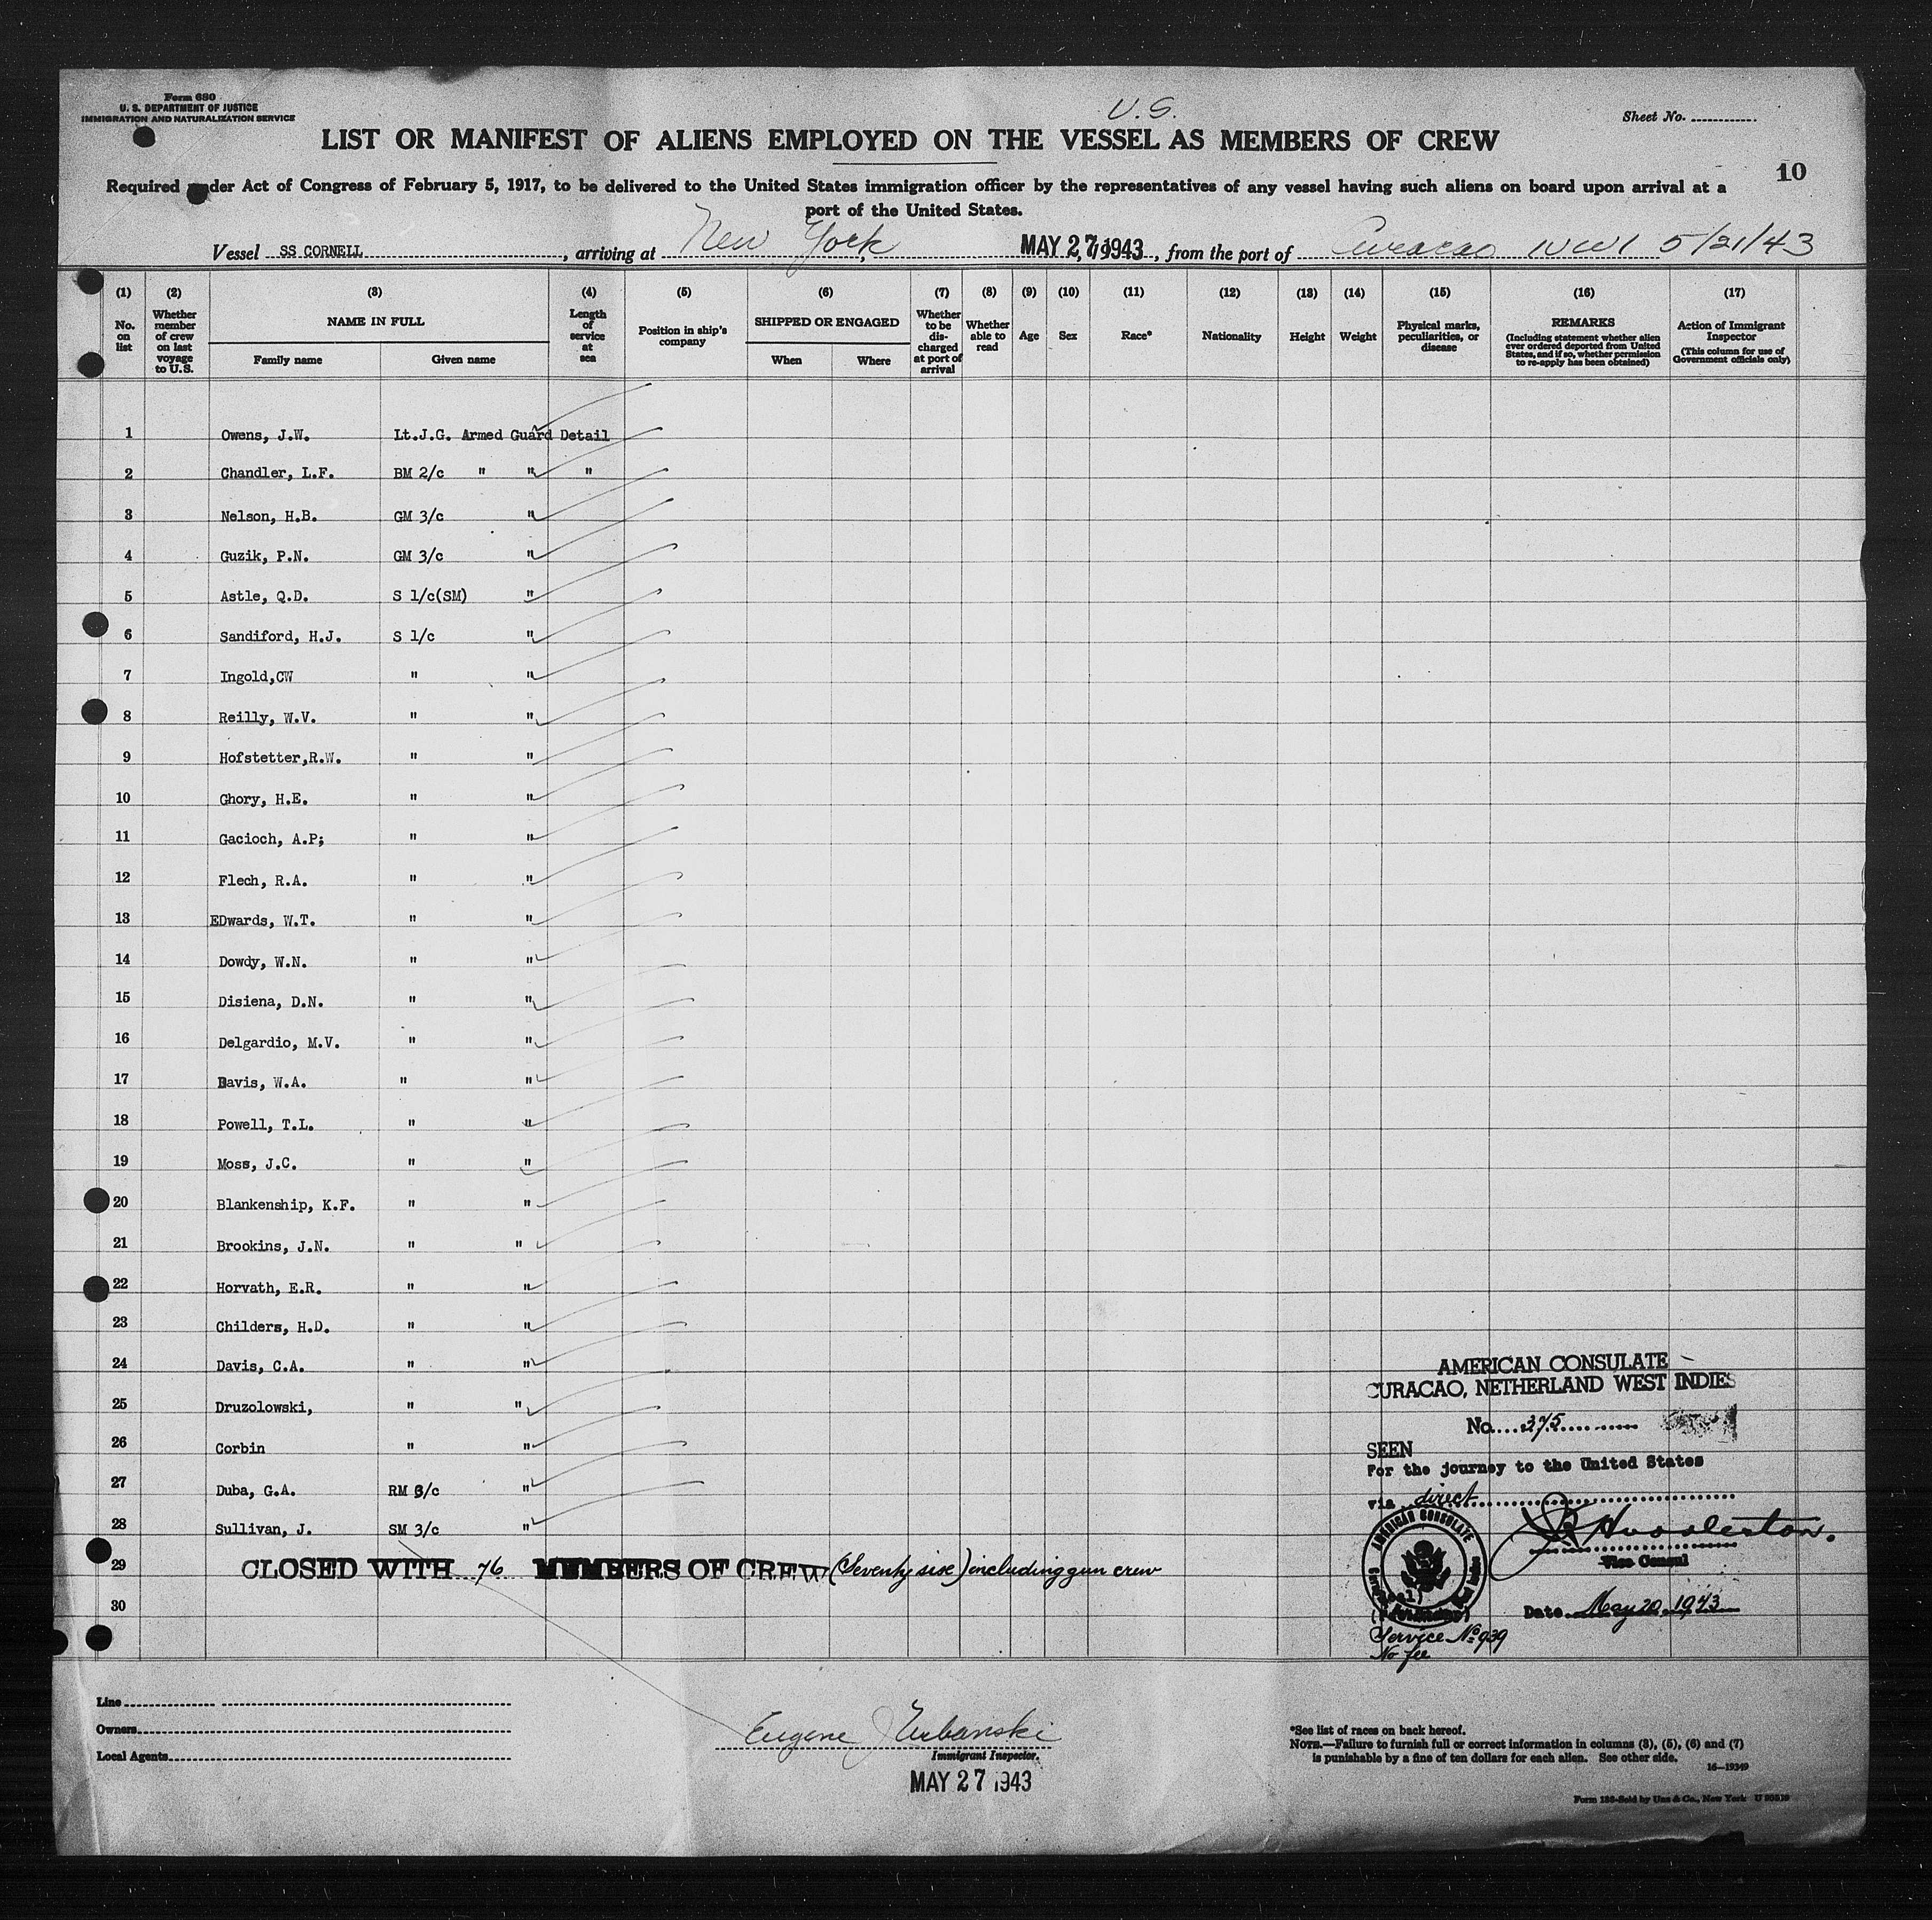 Form 680
U. S. DEPARTMENT OF JUSTICE
IMMIGRATION AND NATURALIZATION SERVICE
U.S.
Sheet No.
LIST OR MANIFEST OF ALIENS EMPLOYED ON THE VESSEL AS MEMBERS OF CREW
10
Required under Act of Congress of February 5, 1917, to be delivered to the United States immigration officer by the representatives of any vessel having such aliens on board upon arrival at a
port of the United States.
Vessel SS CORNELL, arriving at New York, MAY 27 1943, from the port of Curacao NWI 5/21/43
(1) (2) (3) (4) (5) (6) (7) (8) (9) (10) (11) (12) (13) (14) (15) (16) (17)
No. on list
Whether member of crew on last voyage to U.S.
NAME IN FULL
Family name
Given name
Length of service at sea
Position in ship's company
SHIPPED OR ENGAGED
When
Where
Whether to be discharged at port of arrival
Whether able to read
Age
Sex
Race*
Nationality
Height
Weight
Physical marks, peculiarities, or disease
REMARKS
(Including statement whether alien ever ordered deported from United States, and if so, whether permission to re-apply has been obtained)
Action of Immigrant Inspector
(This column for use of Government officials only)
1 Owens, J.W. Lt.J.G. Armed Guard Detail
2 Chandler, L.F. BM 2/c " " "
3 Nelson, H.B. GM 3/c "
4 Guzik, P.N. GM 3/c "
5 Astle, Q.D. S 1/c(SM) "
6 Sandiford, H.J. S 1/c "
7 Ingold,CW " "
8 Reilly, W.V. " "
9 Hofstetter,R.W. " "
10 Ghory, H.E. " "
11 Gacioch, A.P; " "
12 Flech, R.A. " "
13 EDwards, W.T. " "
14 Dowdy, W.N. " "
15 Disiena, D.N. " "
16 Delgardio, M.V. " "
17 Davis, W.A. " "
18 Powell, T.L. " "
19 Moss, J.C. " "
20 Blankenship, K.F. " "
21 Brookins, J.N. " "
22 Horvath, E.R. " "
23 Childers, H.D. " "
24 Davis, C.A. " "
25 Druzolowski, " "
26 Corbin " "
27 Duba, G.A. RM 3/c "
28 Sullivan, J. SM 3/c "
29 CLOSED WITH 76 MEMBERS OF CREW (Seventy six) including gun crew
30
AMERICAN CONSULATE
CURACAO, NETHERLAND WEST INDIES
No. 375
SEEN
For the journey to the United States
via direct
AMERICAN CONSULATE
Vice Consul
Date May 20, 1943
Service No 939
No fee
Line
Owners
Local Agents
Eugene
Immigrant Inspector.
MAY 27 1943
*See list of races on back hereof.
NOTE.—Failure to furnish full or correct information in columns (3), (5), (6) and (7)
is punishable by a fine of ten dollars for each alien. See other side.
16—19349